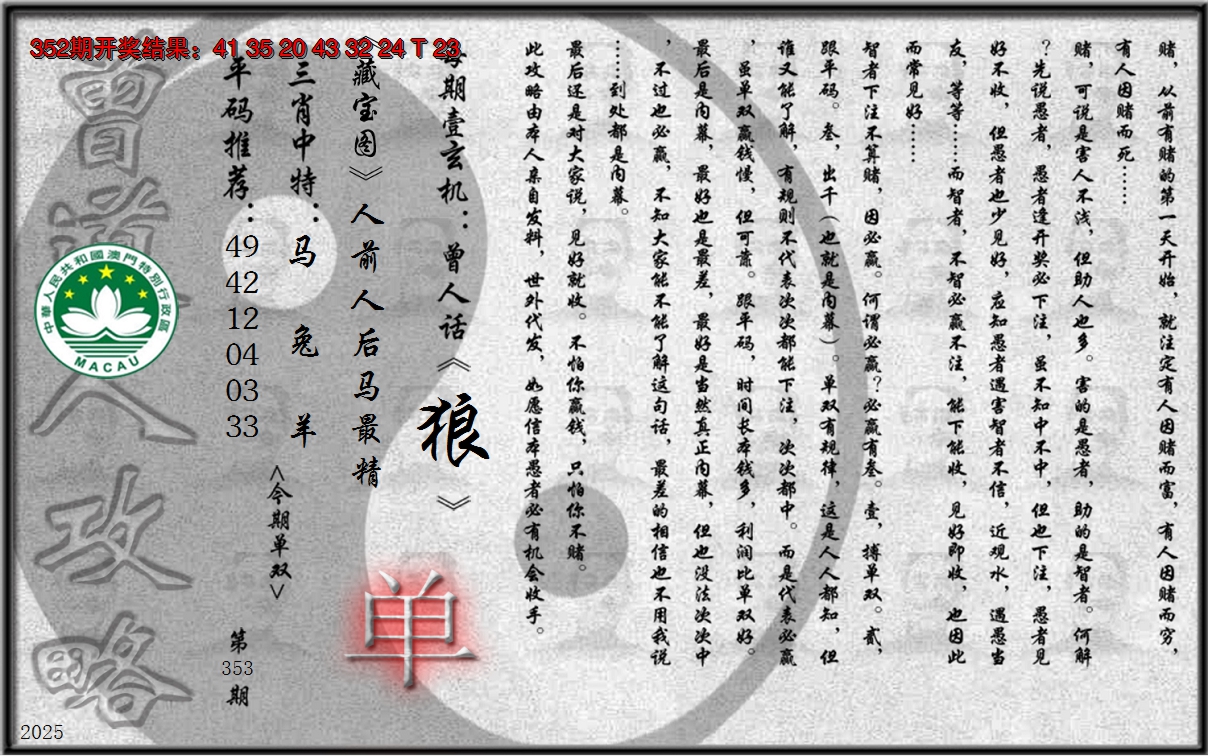 352期开奖结果：41 35 20 43 32 24 T 23
赌，从前有赌的第一天开始，就注定有人因赌而富，有人因赌而穷，
有人因赌而死……
赌，可说是害人不浅，但助人也多。害的是愚者，助的是智者。何解
？先说愚者，愚者逢开奖必下注，虽不知中不中，但也下注，愚者见
好不收，但愚者也少见好，应知愚者遇害智者不信，近观水，遇愚当
友，等等……而智者，不智必赢不注，能下能收，见好即收，也因此
而常见好……
智者下注不算赌，因必赢。何谓必赢？必赢有叁。壹，搏单双。贰，
跟平码。叁，出千（也就是内幕）。单双有规律，这是人人都知，但
谁又能了解，有规则不代表次次都能下注，次次都中。而是代表必赢
，虽单双赢钱慢，但可靠。跟平码，时间长本钱多，利润比单双好。
最后是内幕，最好也是最差，最好是当然真正内幕，但也没法次次中
，不过也必赢，不知大家能不能了解这句话，最差的相信也不用我说
……到处都是内幕。
最后还是对大家说，见好就收。不怕你赢钱，只怕你不赌。
此攻略由本人亲自发料，世外代发，如愿信本愚者必有机会收手。
每期壹玄机：曾人话《狼》
《藏宝图》人前人后马最精
三肖中特：马 兔 羊
平码推荐：49 42 12 04 03 33
<今期单双>
单
第353期
曾道人攻略
中華人民共和國澳門特別行政區
MACAU
2025